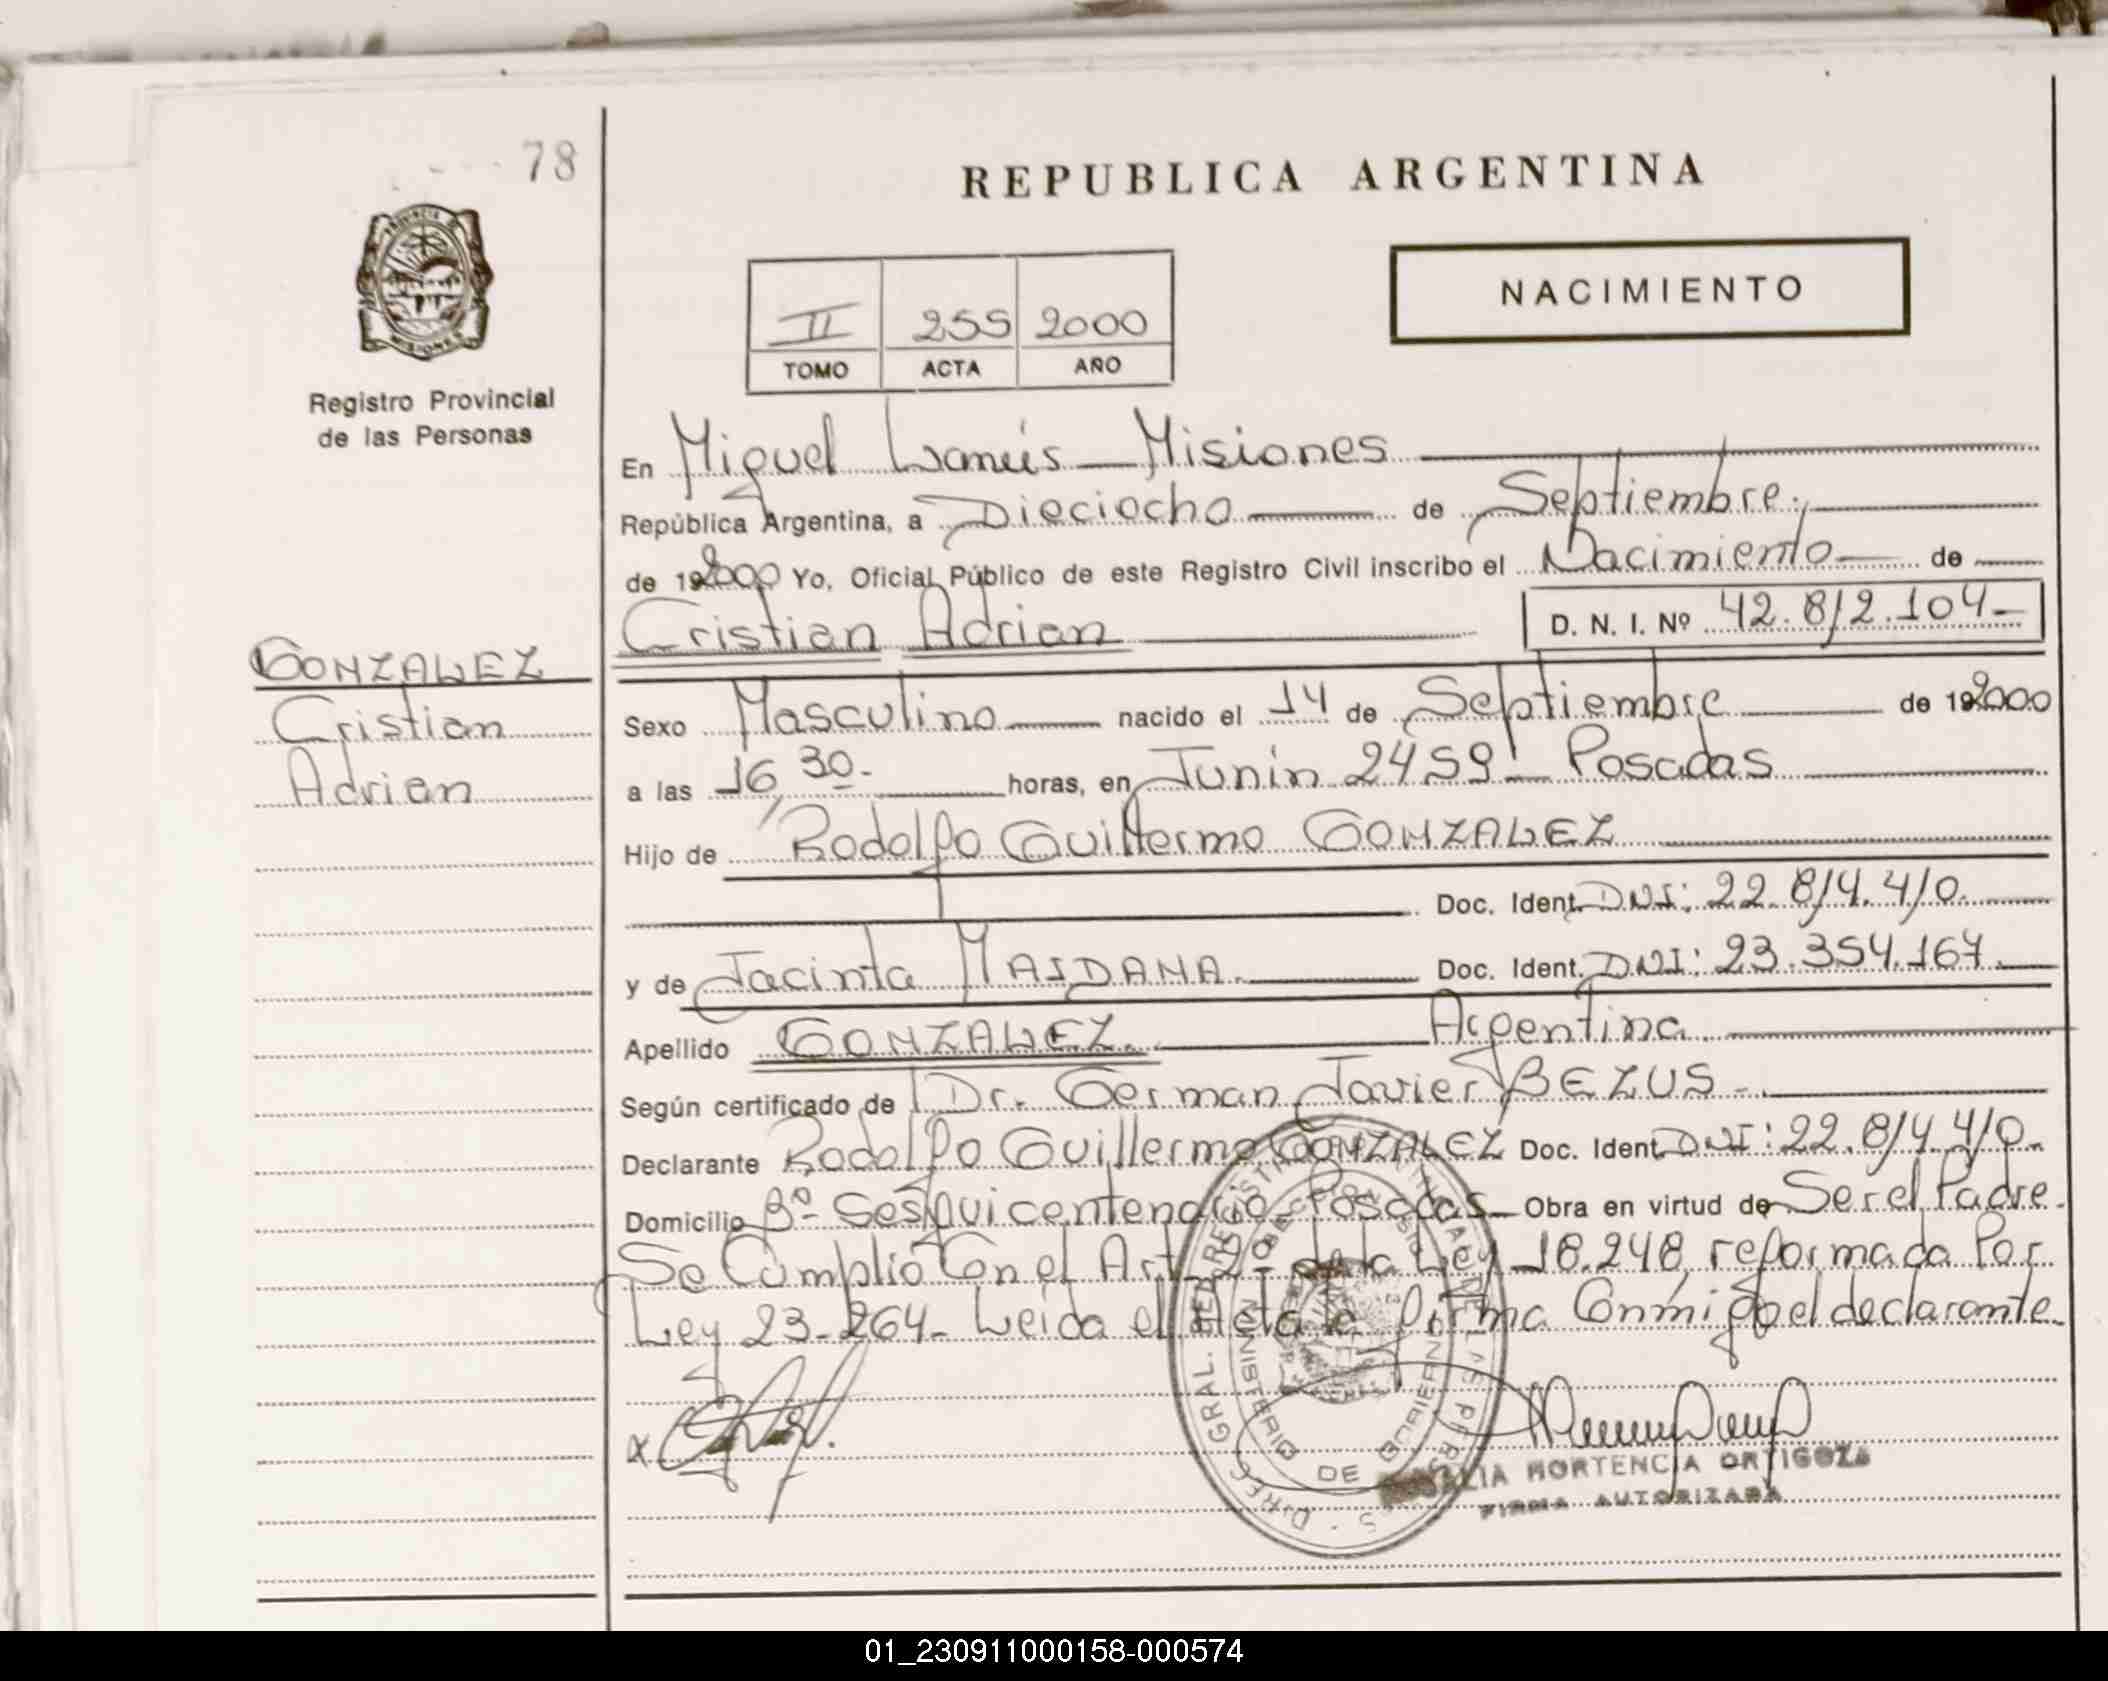 78
REPUBLICA ARGENTINA
NACIMIENTO
II 255 2000
TOMO ACTA AÑO
PROVINCIA DE MISIONES
Registro Provincial
de las Personas
En Miguel Lanús - Misiones
República Argentina, a Dieciocho de Septiembre.
de 192000 Yo, Oficial Público de este Registro Civil inscribo el Nacimiento de
Cristian Adrian D. N. I. Nº 42.812.104-
GONZALEZ
Cristian
Adrian
Sexo Masculino nacido el 14 de Septiembre de 192000
a las 16,30.- horas, en Junín 2459 - Posadas
Hijo de Rodolfo Guillermo GONZALEZ
Doc. Ident. DNI: 22.814.410.
y de Jacinta MAIDANA. Doc. Ident. DNI: 23.354.167.
Apellido GONZALEZ. Argentina
Según certificado de Dr. German Javier BEZUS -.
Declarante Rodolfo Guillermo GONZALEZ Doc. Ident. DNI: 22.814.410.
Domicilio Bº Sesquicentenario - Posadas - Obra en virtud de Ser el Padre.
Se Cumplió Con el Art. de la Ley 18.248, reformada Por
Ley 23.264. Leída el Acta la Firma Conmigo el declarante.
X
DIREC. GRAL. DEL REGISTRO DE LAS PERSONAS
MINISTERIO DE GOBIERNO
HORTENCIA ORTIGOZA
FIRMA AUTORIZADA
01_230911000158-000574